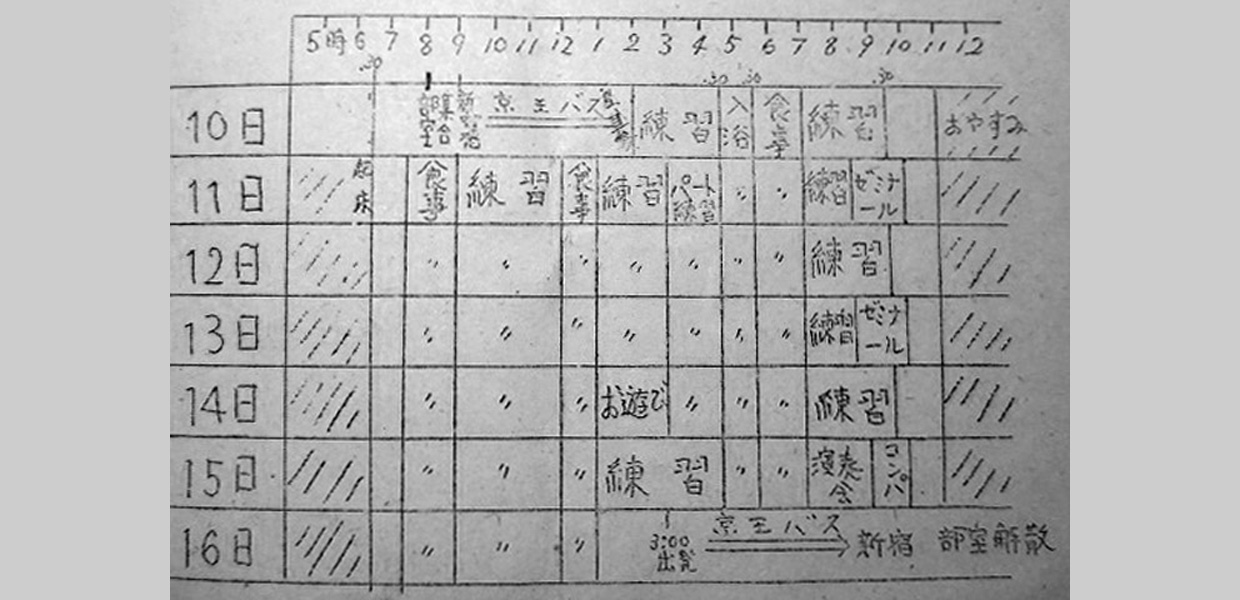 5時 6 7 8 9 10 11 12 1 2 3 4 5 6 7 8 9 10 11 12
.30 .30 .30 .30
10日 部室集合 新宿発 京王バス 食事 練習 入浴 食事 練習 おやすみ
11日 起床 食事 練習 食事 練習 パート練習 〃 〃 練習 ゼミナール
12日 〃 〃 〃 〃 〃 〃 〃 練習
13日 〃 〃 〃 〃 〃 〃 〃 練習 ゼミナール
14日 〃 〃 〃 お遊び 〃 〃 〃 練習
15日 〃 〃 〃 練習 〃 〃 演奏会 コンパ
16日 〃 〃 〃 3:00出発 京王バス 新宿 部室解散